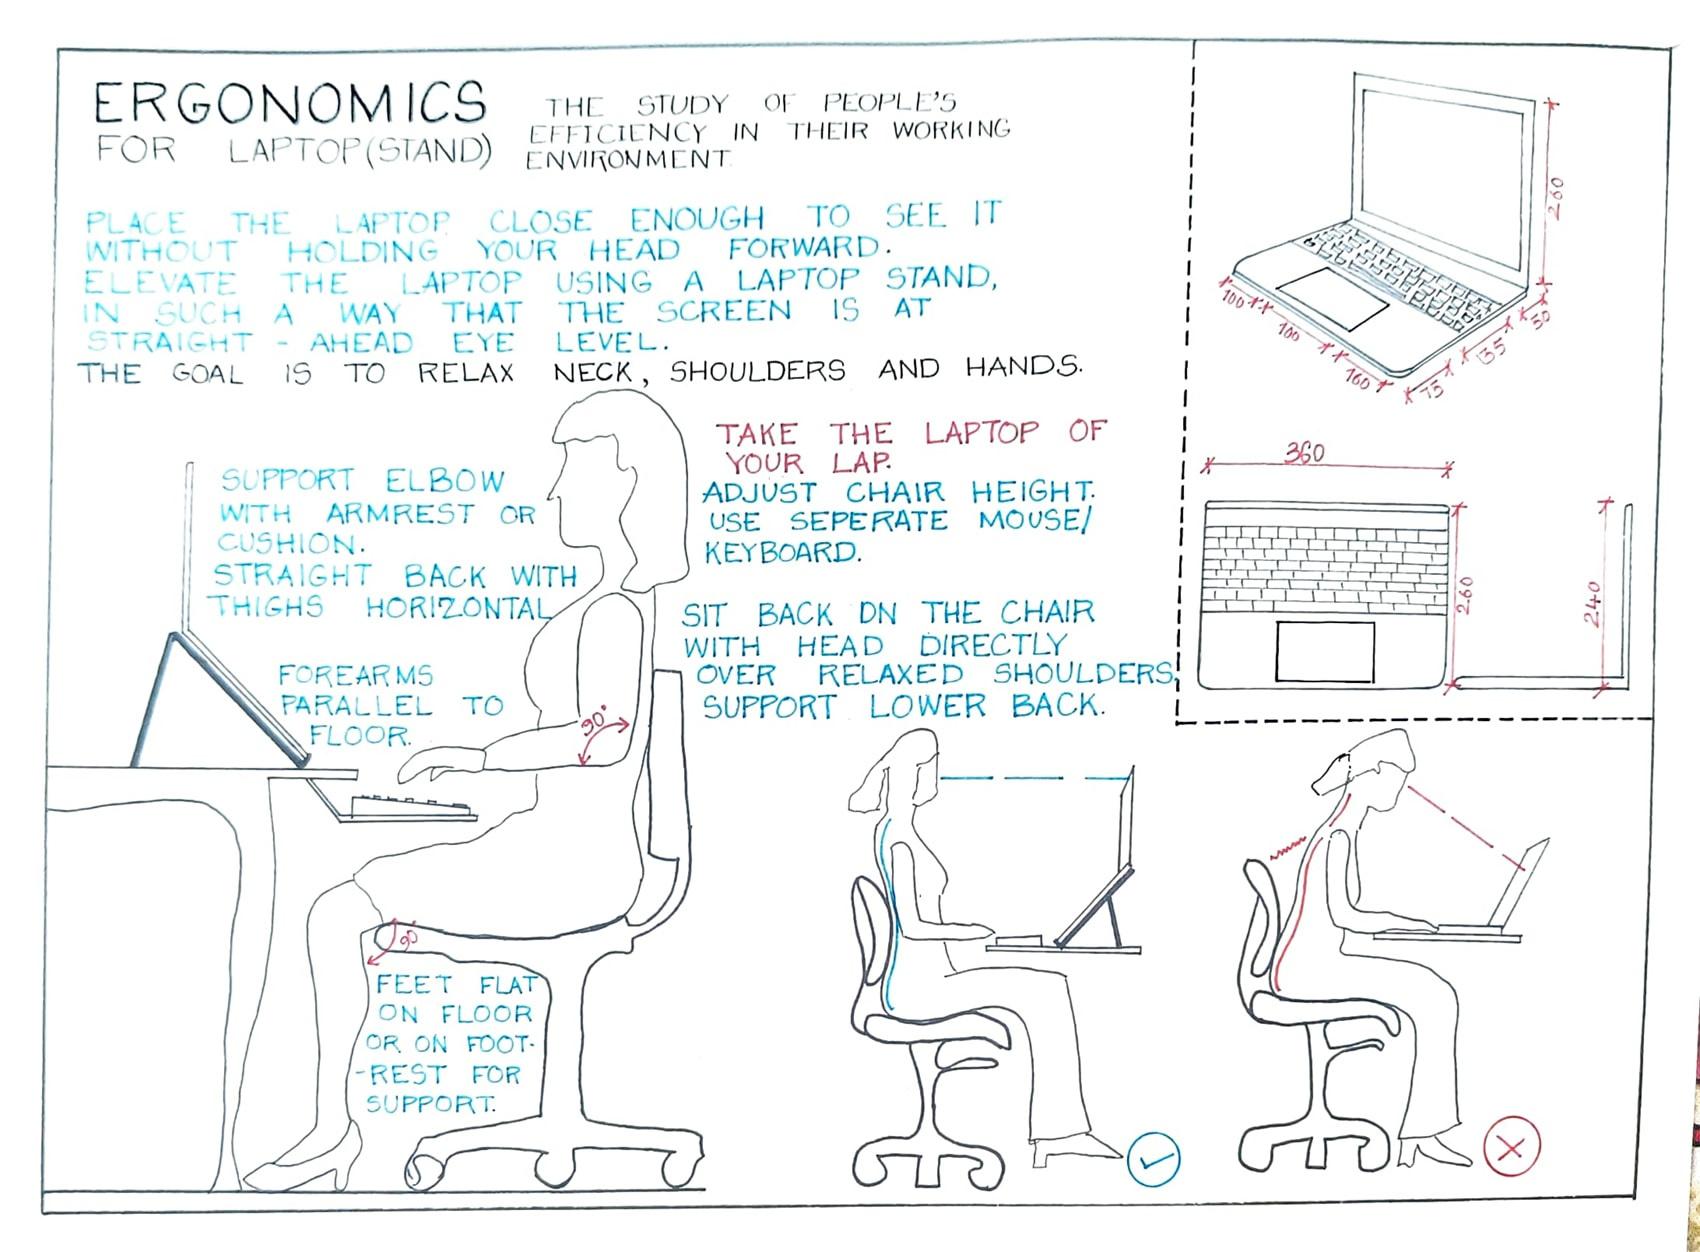 ERGONOMICS
FOR LAPTOP(STAND)
THE STUDY OF PEOPLE'S
EFFICIENCY IN THEIR WORKING
ENVIRONMENT.
PLACE THE LAPTOP CLOSE ENOUGH TO SEE IT
WITHOUT HOLDING YOUR HEAD FORWARD.
ELEVATE THE LAPTOP USING A LAPTOP STAND,
IN SUCH A WAY THAT THE SCREEN IS AT
STRAIGHT - AHEAD EYE LEVEL.
THE GOAL IS TO RELAX NECK, SHOULDERS AND HANDS.
SUPPORT ELBOW
WITH ARMREST OR
CUSHION.
STRAIGHT BACK WITH
THIGHS HORIZONTAL
FOREARMS
PARALLEL TO
FLOOR.
90°
90°
FEET FLAT
ON FLOOR
OR ON FOOT-
-REST FOR
SUPPORT.
TAKE THE LAPTOP OF
YOUR LAP.
ADJUST CHAIR HEIGHT.
USE SEPERATE MOUSE/
KEYBOARD.
SIT BACK ON THE CHAIR
WITH HEAD DIRECTLY
OVER RELAXED SHOULDERS
SUPPORT LOWER BACK.
260
100
100
160
75
135
50
360
260
240